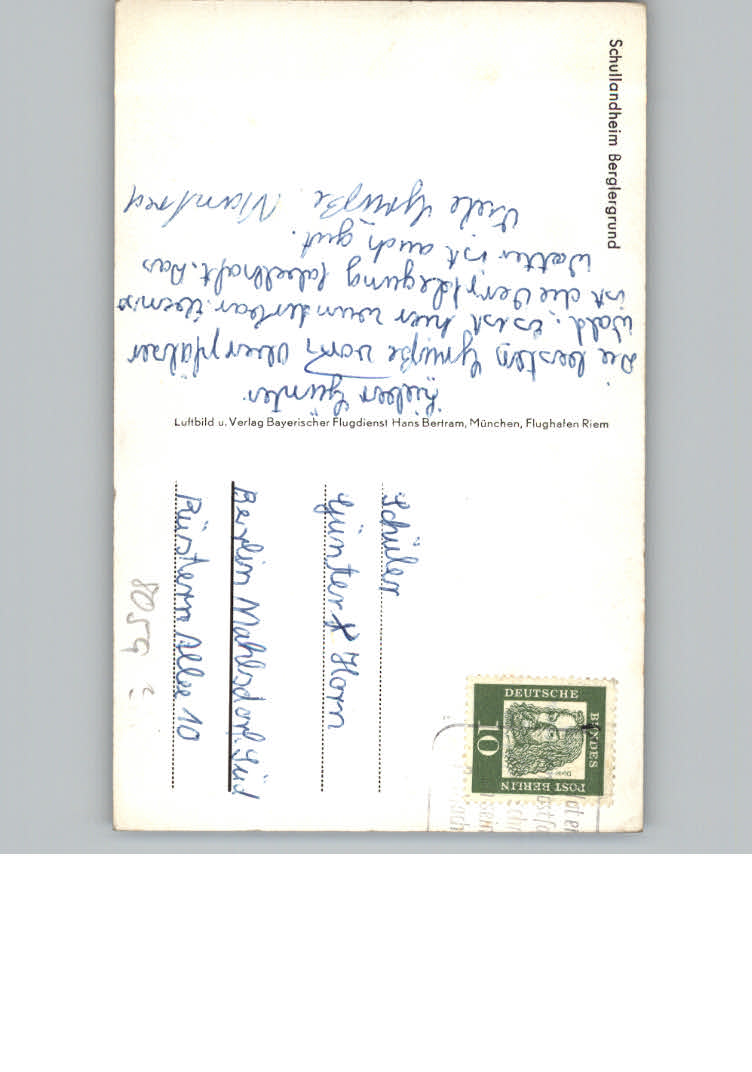 Schullandheim Berglergrund
Lieber Günter.
Die besten Grüße vom Oberpfälzer
Wald. Es ist hier wunderbar.
ist die Verpflegung fabelhaft. Das
Wetter ist auch gut.
Viele Grüße Manfred
Luftbild u. Verlag Bayerischer Flugdienst Hans Bertram, München, Flughafen Riem
Schüler
Günter Horn
Berlin Mahlsdorf-Süd
Rüstern Allee 10
8059
DEUTSCHE
BUNDES
POST BERLIN
10